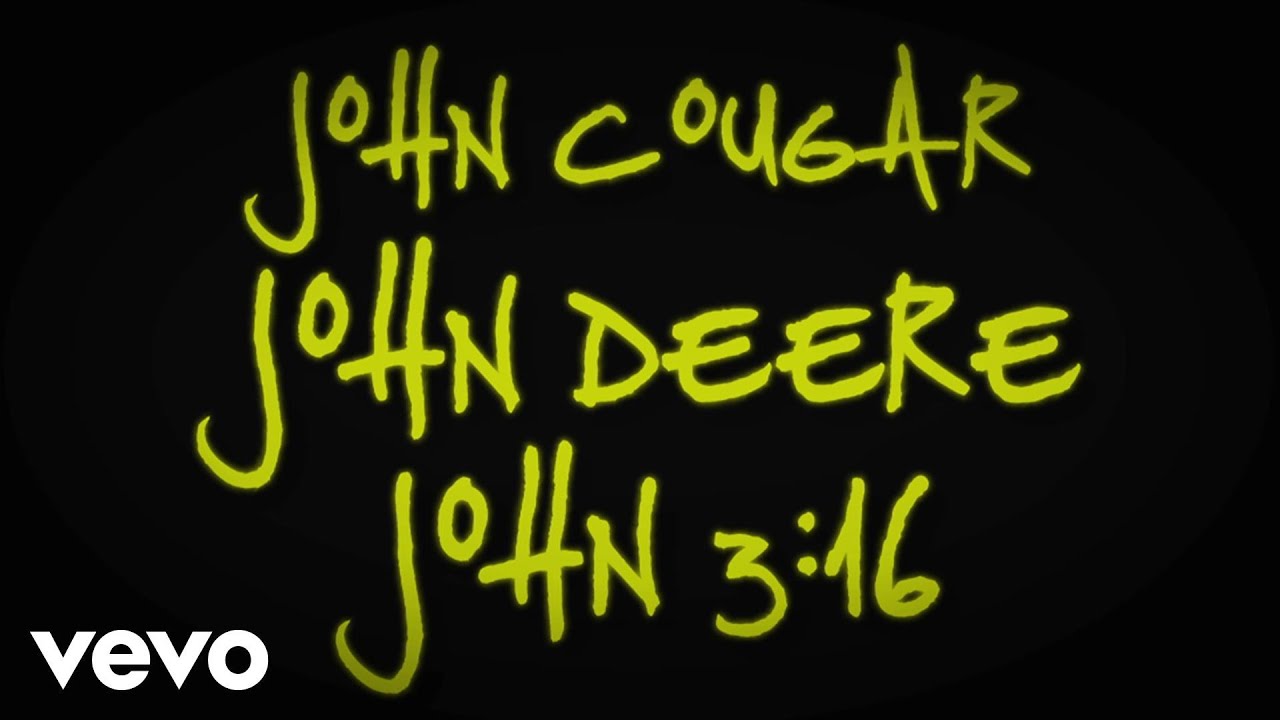 JOHN COUGAR
JOHN DEERE
JOHN 3:16
vevo